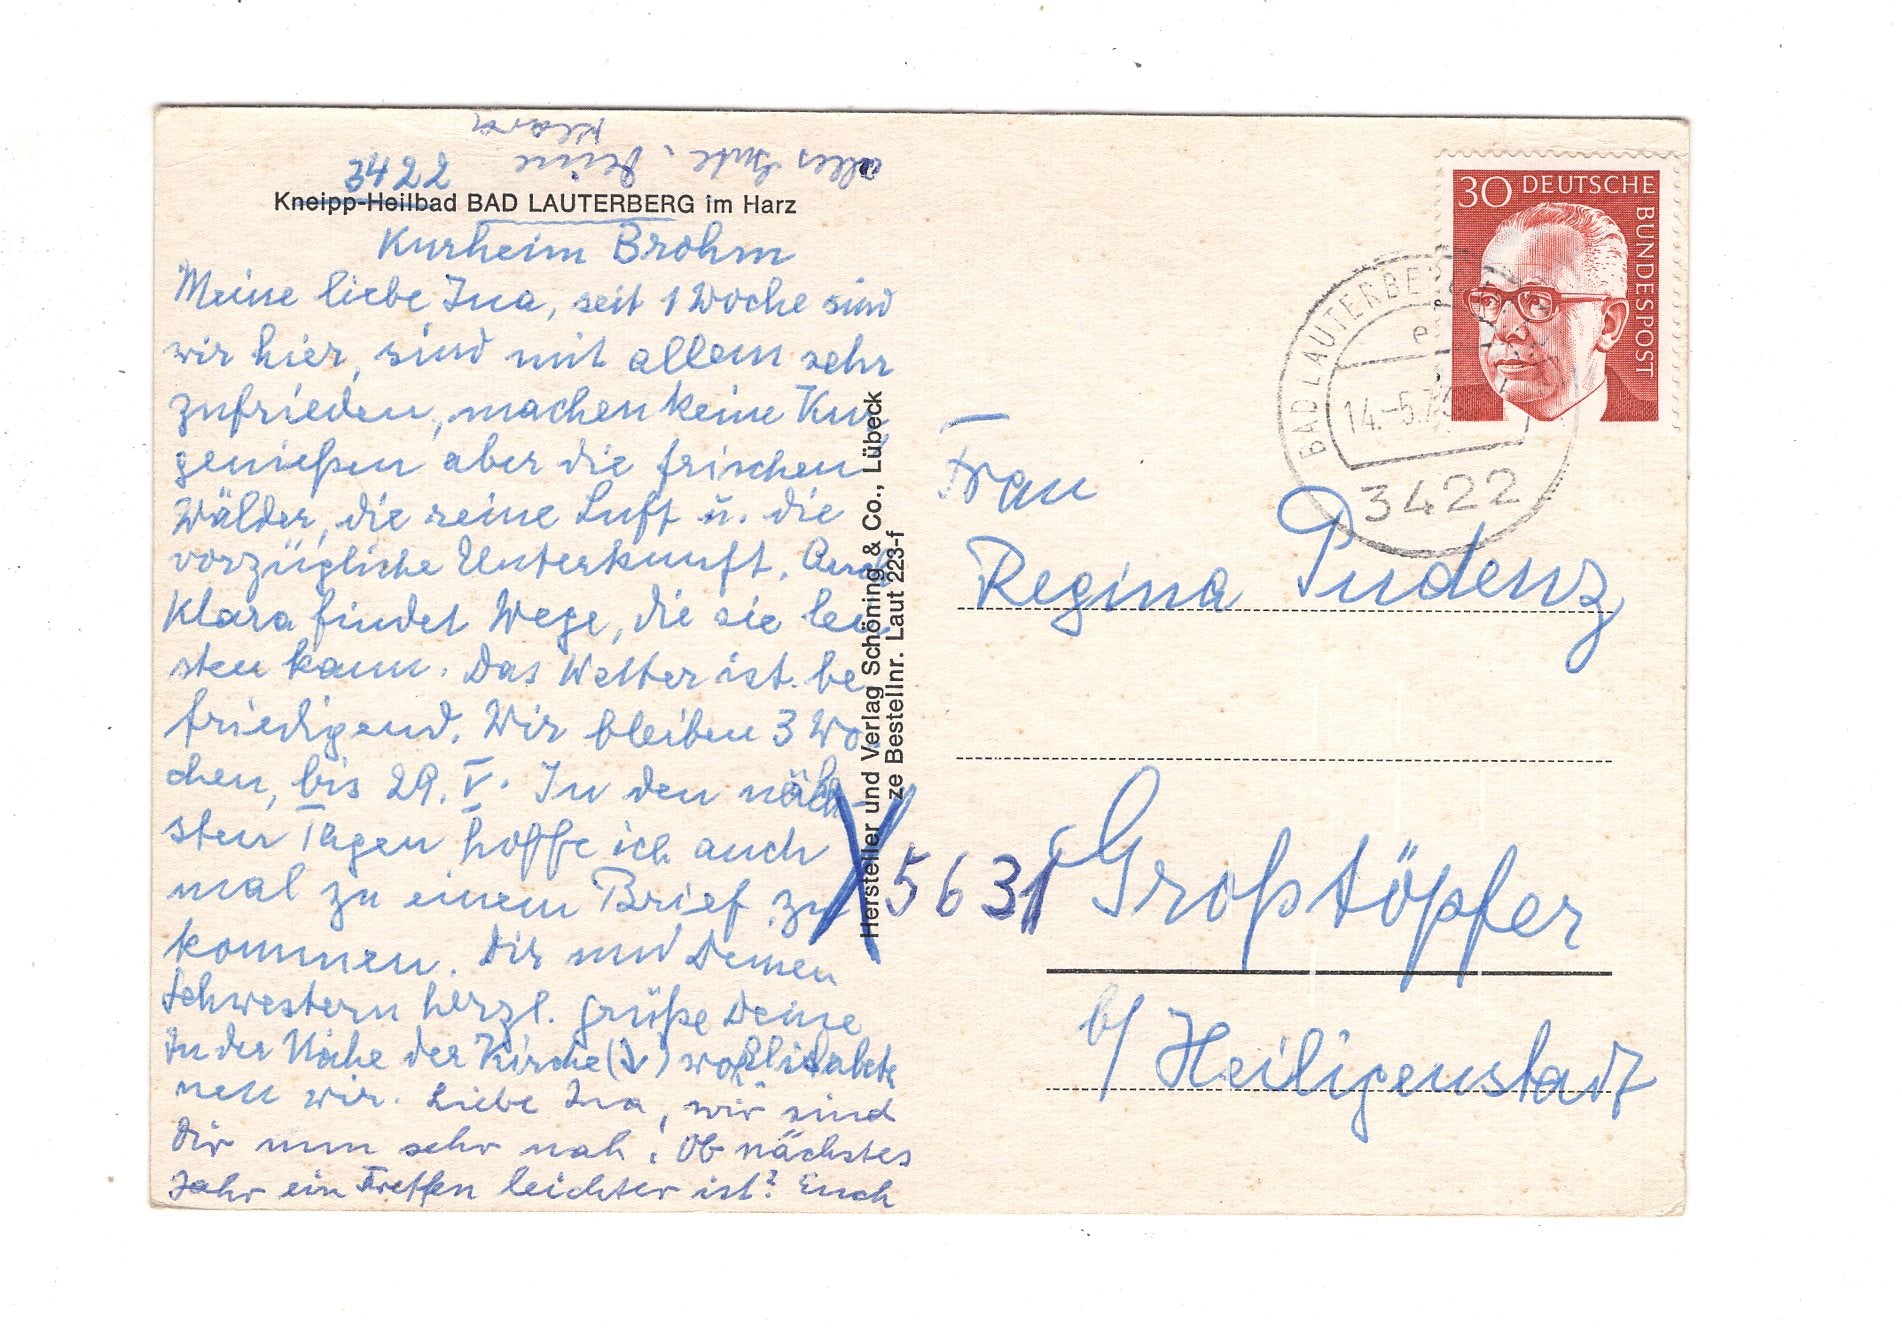 3422
Kneipp-Heilbad BAD LAUTERBERG im Harz
Kurheim Brohm
Meine liebe Ina, seit 1 Woche sind
wir hier, sind mit allem sehr
zufrieden, machen keine Kur
genießen aber die frischen
Wälder, die reine Luft u. die
vorzügliche Unterkunft. Auch
Klara findet Wege, die sie lei
sten kann. Das Wetter ist be
friedigend. Wir bleiben 3 Wo
chen, bis 29. V. In den näch-
sten Tagen hoffe ich auch
mal zu einem Brief zu
kommen. Dir und Deinen
Schwestern herzl. Grüße Deine
Elisabeth
In der Nähe der Kirche (↓) woh
nen wir. Liebe Ina, wir sind
Dir nun sehr nah! Ob nächstes
Jahr ein Treffen leichter ist? Euch
alles Gute, Deine
Klara
Hersteller und Verlag Schöning & Co., Lübeck
ze Bestellnr. Laut 223-f
30 DEUTSCHE BUNDESPOST
BAD LAUTERBE
e
14.-5.73
3422
Frau
Regina Pudenz
X 5631 Großtöpfer
b/ Heiligenstadt